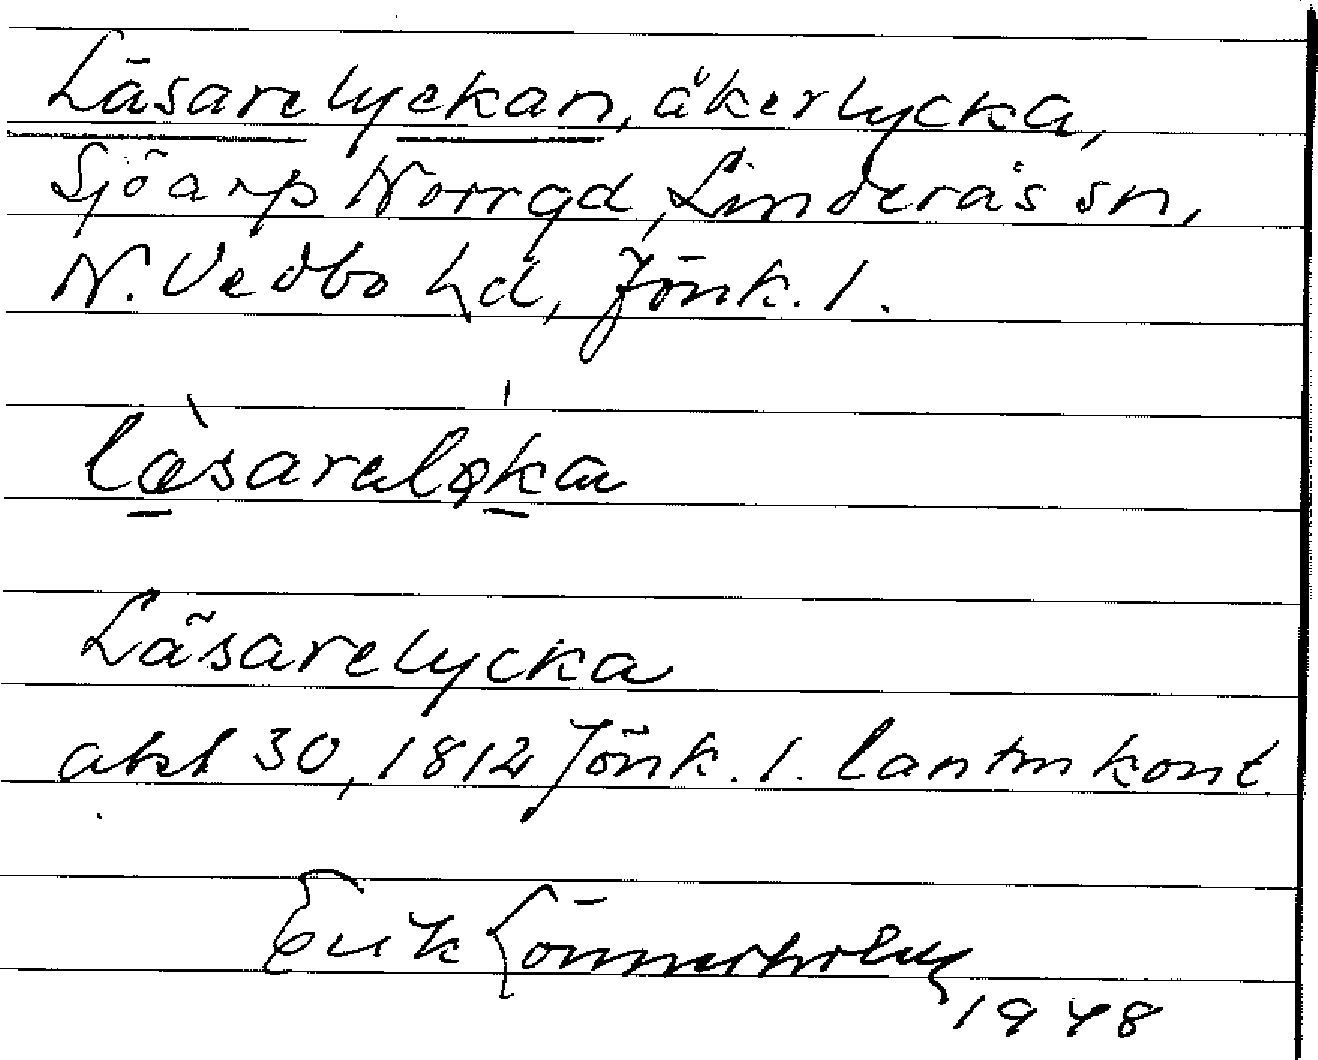 Läsarelyckan, åkerlycka,
Sjöarp Norrgd, Linderås sn,
N. Vedbo hd, Jönk. l.
læ̀saralø̍ka
Läsarelycka
akt 30, 1812 Jönk. l. lantm kont
Erik Lönnerholm
1948